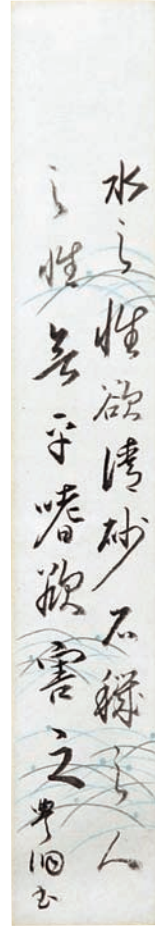 水之性欲清砂石穢之人
之性平嗜欲害之